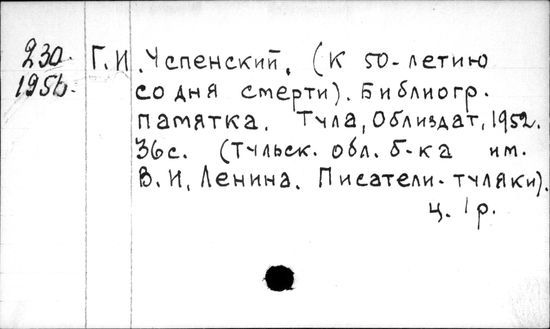 230 Г.И.Успенский. (К 50-летию
195 со дня смерти). Библиогр.
памятка. Тула, Облиздат, 1952.
36с. (Тульск. обл. б-ка им.
В.И. Ленина. Писатели-туляки).
ц. 1р.